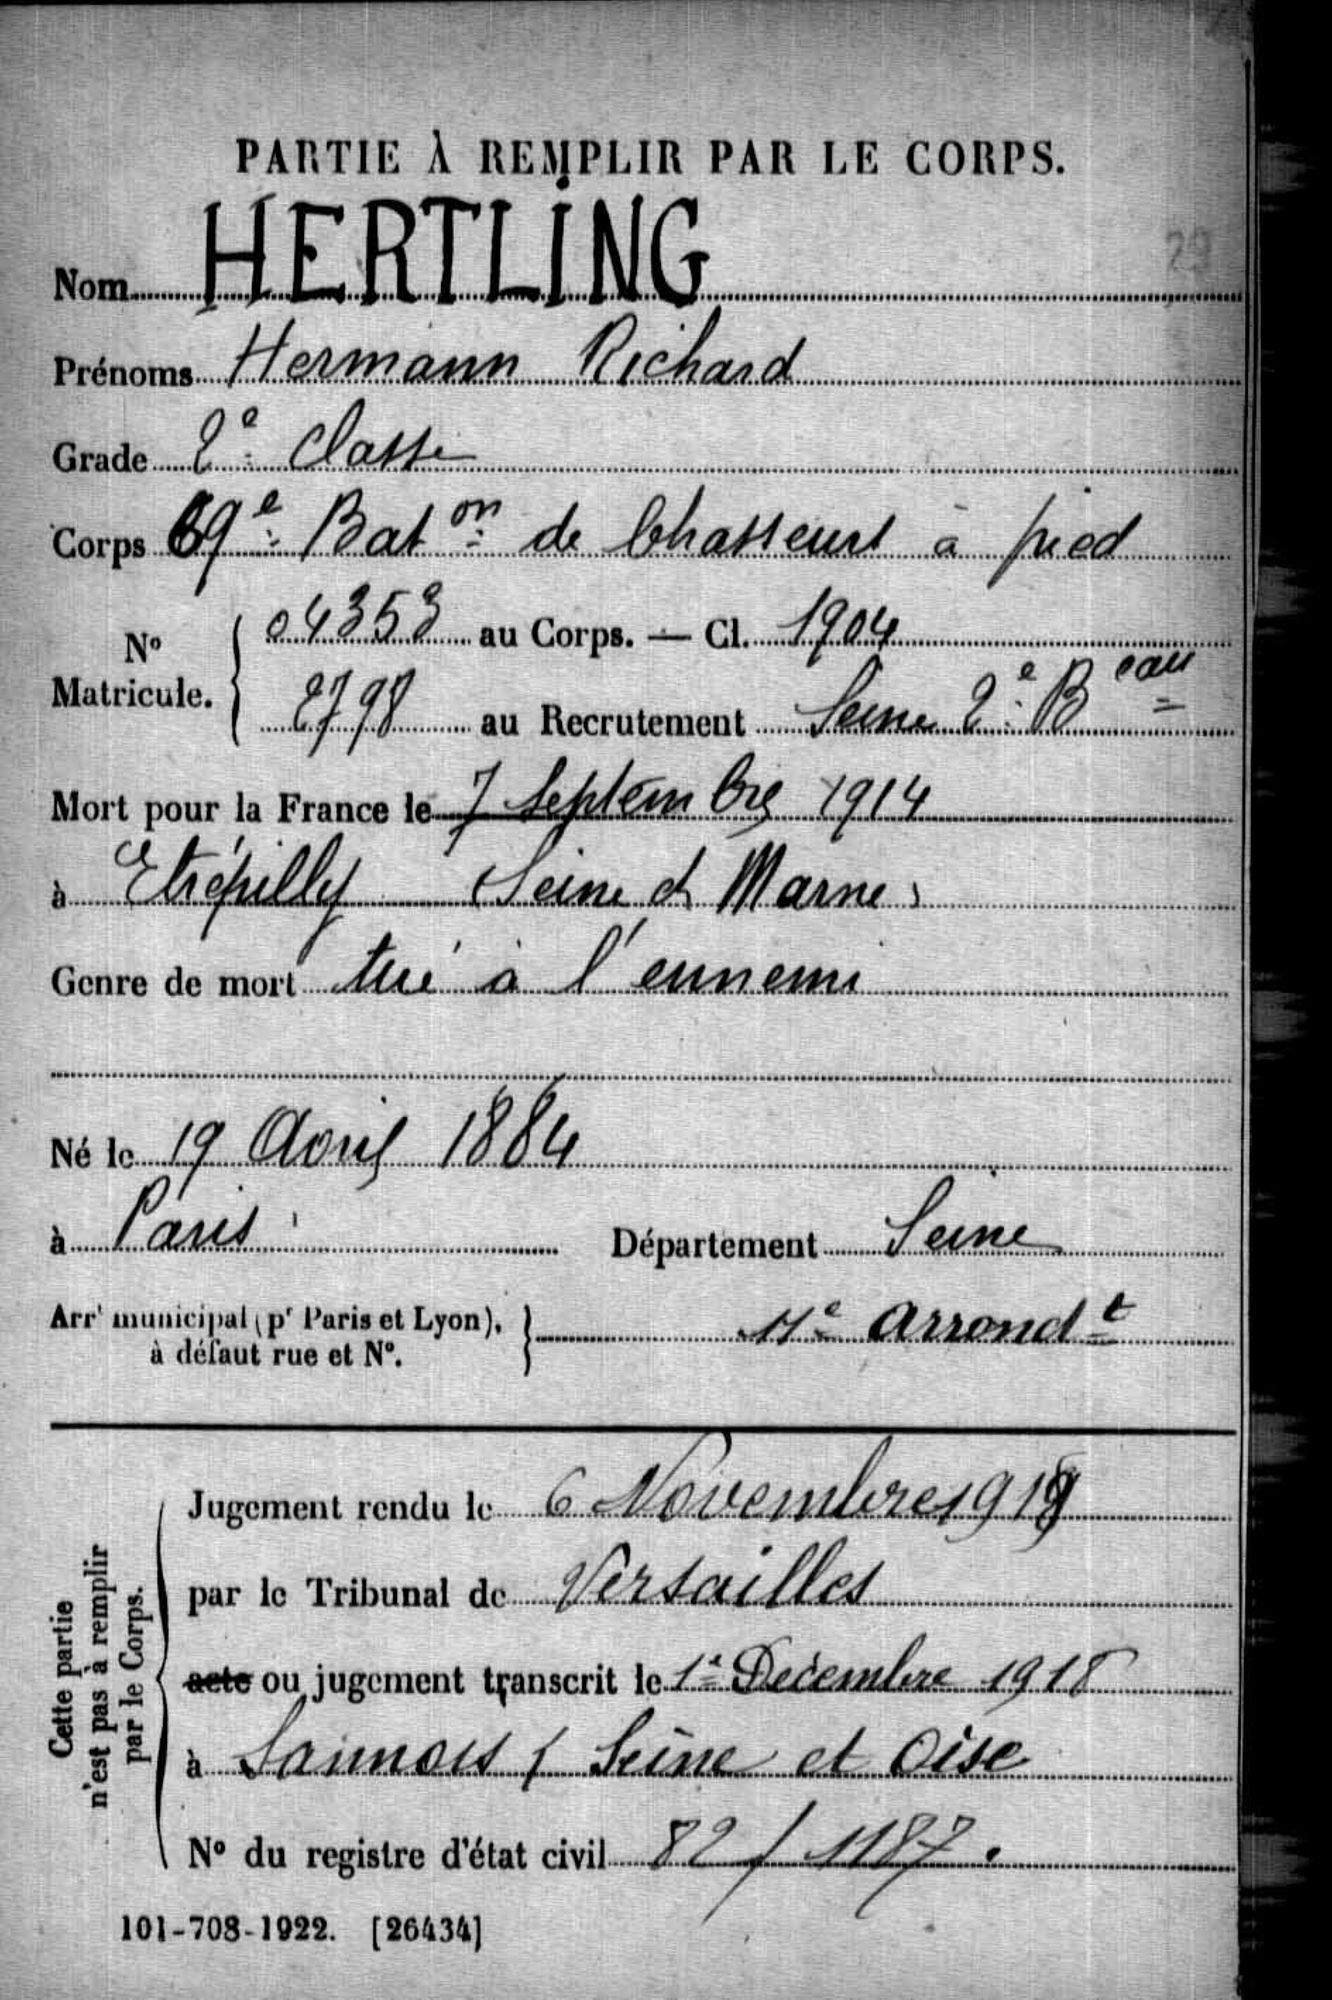 29
PARTIE À REMPLIR PAR LE CORPS.
Nom HERTLING
Prénoms Hermann Richard
Grade 2e classe
Corps 69e Baton de Chasseurs à pied
No Matricule. { 04353 au Corps. — Cl. 1904
2798 au Recrutement Seine 2e Beau
Mort pour la France le 7 Septembre 1914
à Etrépilly (Seine et Marne)
Genre de mort tué à l'ennemi
Né le 19 Avril 1884
à Paris Département Seine
Arrt municipal (pr Paris et Lyon), à défaut rue et No. } 11e Arrondt
Cette partie n'est pas à remplir par le Corps.
Jugement rendu le 6 Novembre 1918
par le Tribunal de Versailles
acte ou jugement transcrit le 1er Décembre 1918
à Sannois (Seine et Oise
No du registre d'état civil 82 / 1187.
101-708-1922. [26434]